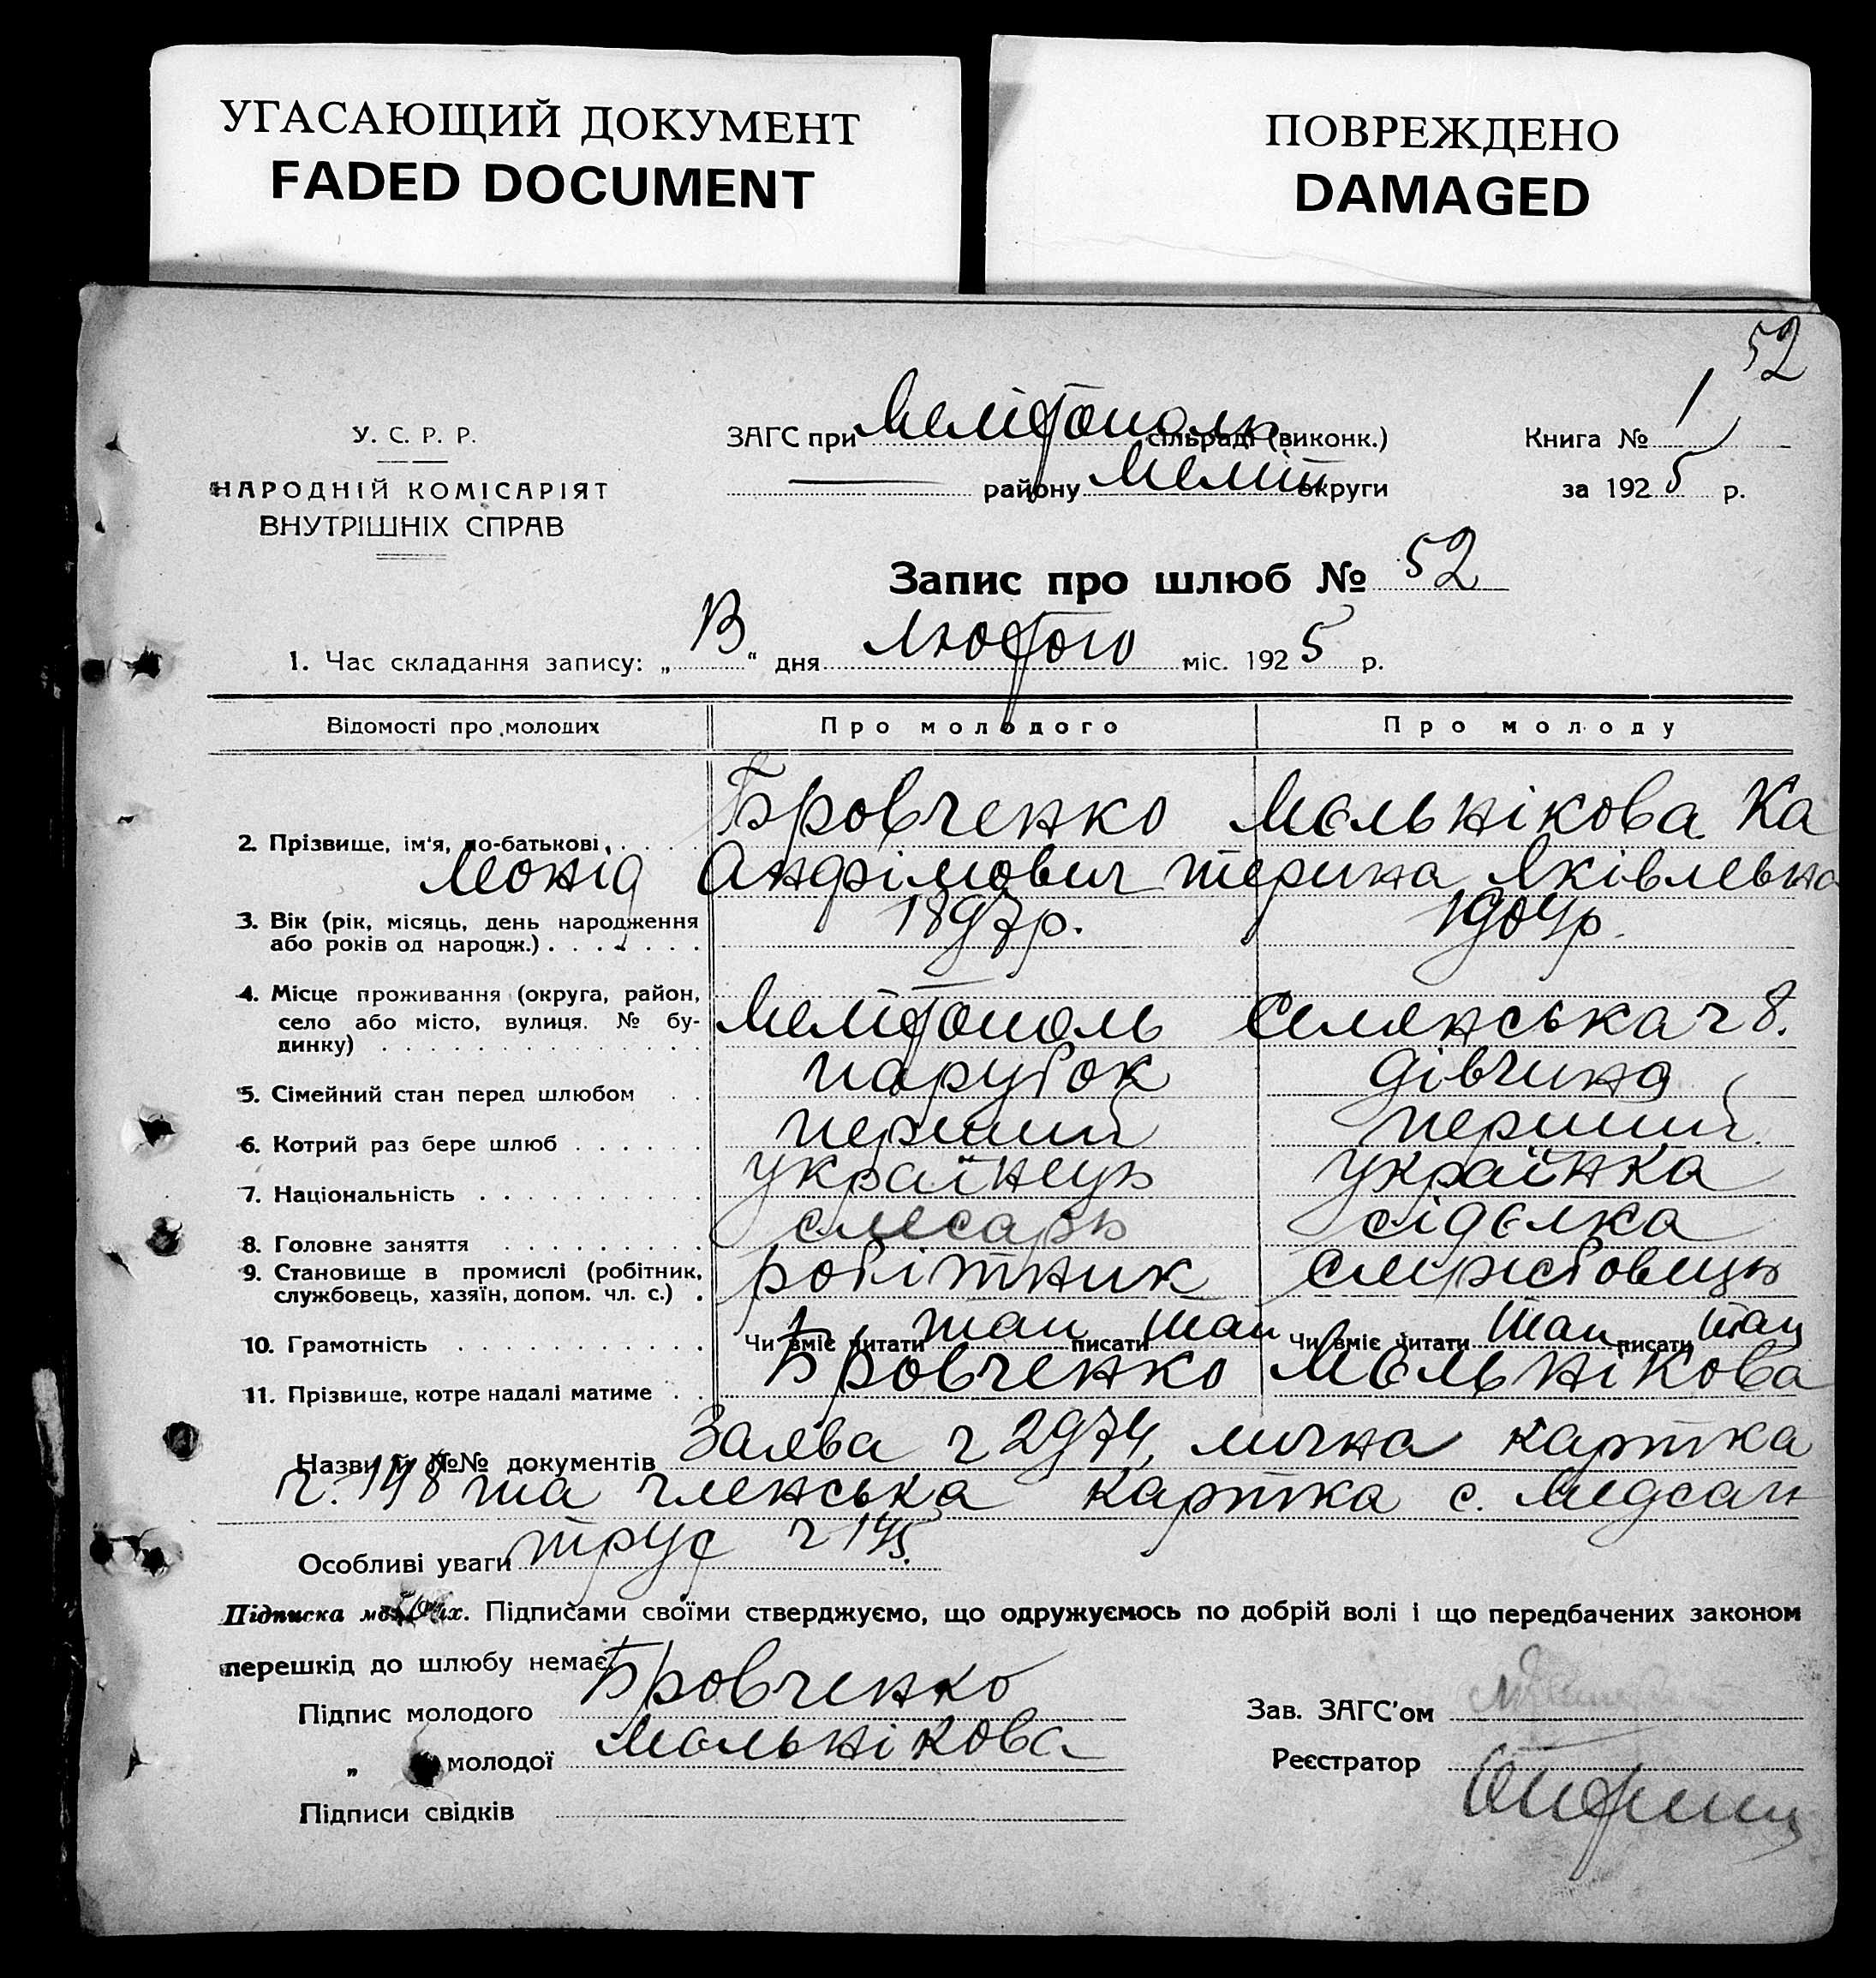 УГАСАЮЩИЙ ДОКУМЕНТ
FADED DOCUMENT
ПОВРЕЖДЕНО
DAMAGED
52
У. С. Р. Р.
НАРОДНІЙ КОМІСАРІЯТ
ВНУТРІШНІХ СПРАВ
ЗАГС при Мелітополь сільраді (виконк.)
району Меліт округи
Книга № 1
за 1925 р.
Запис про шлюб № 52
1. Час складання запису: „ “ дня лютого міс. 1925 р.
Відомості про молодих Про молодого Про молоду
2. Прізвище, ім'я, по-батькові, Бровченко Мєльнікова Ка
Леонід Анфімович терина Яківлевна
3. Вік (рік, місяць, день народження або років од народж.) 1897р. 1904р.
4. Місце проживання (округа, район, село або місто, вулиця. № будинку) Мелітополь Селянська ч 8.
5. Сімейний стан перед шлюбом парубок дівчина
6. Котрий раз бере шлюб перший перший
7. Національність українець українка
8. Головне заняття слюсарь сідєлка
9. Становище в промислі (робітник, службовець, хазяїн, допом. чл. с.) робітник службовець
10. Грамотність Чи вміє читати так писати так Чи вміє читати так писати так
11. Прізвище, котре надалі матиме Бровченко Мєльнікова
Назви й №№ документів Заява ч 2974, лична картка
ч. 148 та членська картка с. Медсан
Особливі уваги труд ч 145.
Підписка молодих. Підписами своїми стверджуємо, що одружуємось по добрій волі і що передбачених законом
перешкід до шлюбу немає.
Підпис молодого Бровченко
„ молодої Мєльнікова
Підписи свідків
Зав. ЗАГС'ом
Реєстратор